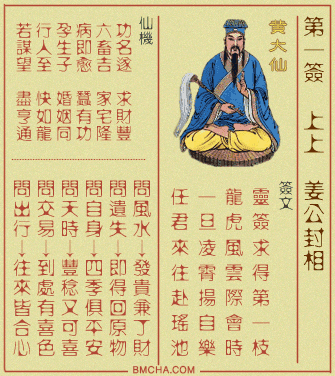 第一簽 上上 姜公封相
黃大仙
簽文
靈簽求得第一枝
龍虎風雲際會時
一旦凌霄揚自樂
任君來往赴瑤池
仙機
功名遂 求財豐
六畜吉 家宅隆
病即愈 蠶有功
孕生子 婚姻同
行人至 快如龍
若謀望 盡亨通
問風水↓發貴兼了財
問遺失↓即得回原物
問自身↓四季俱平安
問天時↓豐稔又可喜
問交易↓到處有喜色
問出行↓往來皆合心
BMCHA.COM